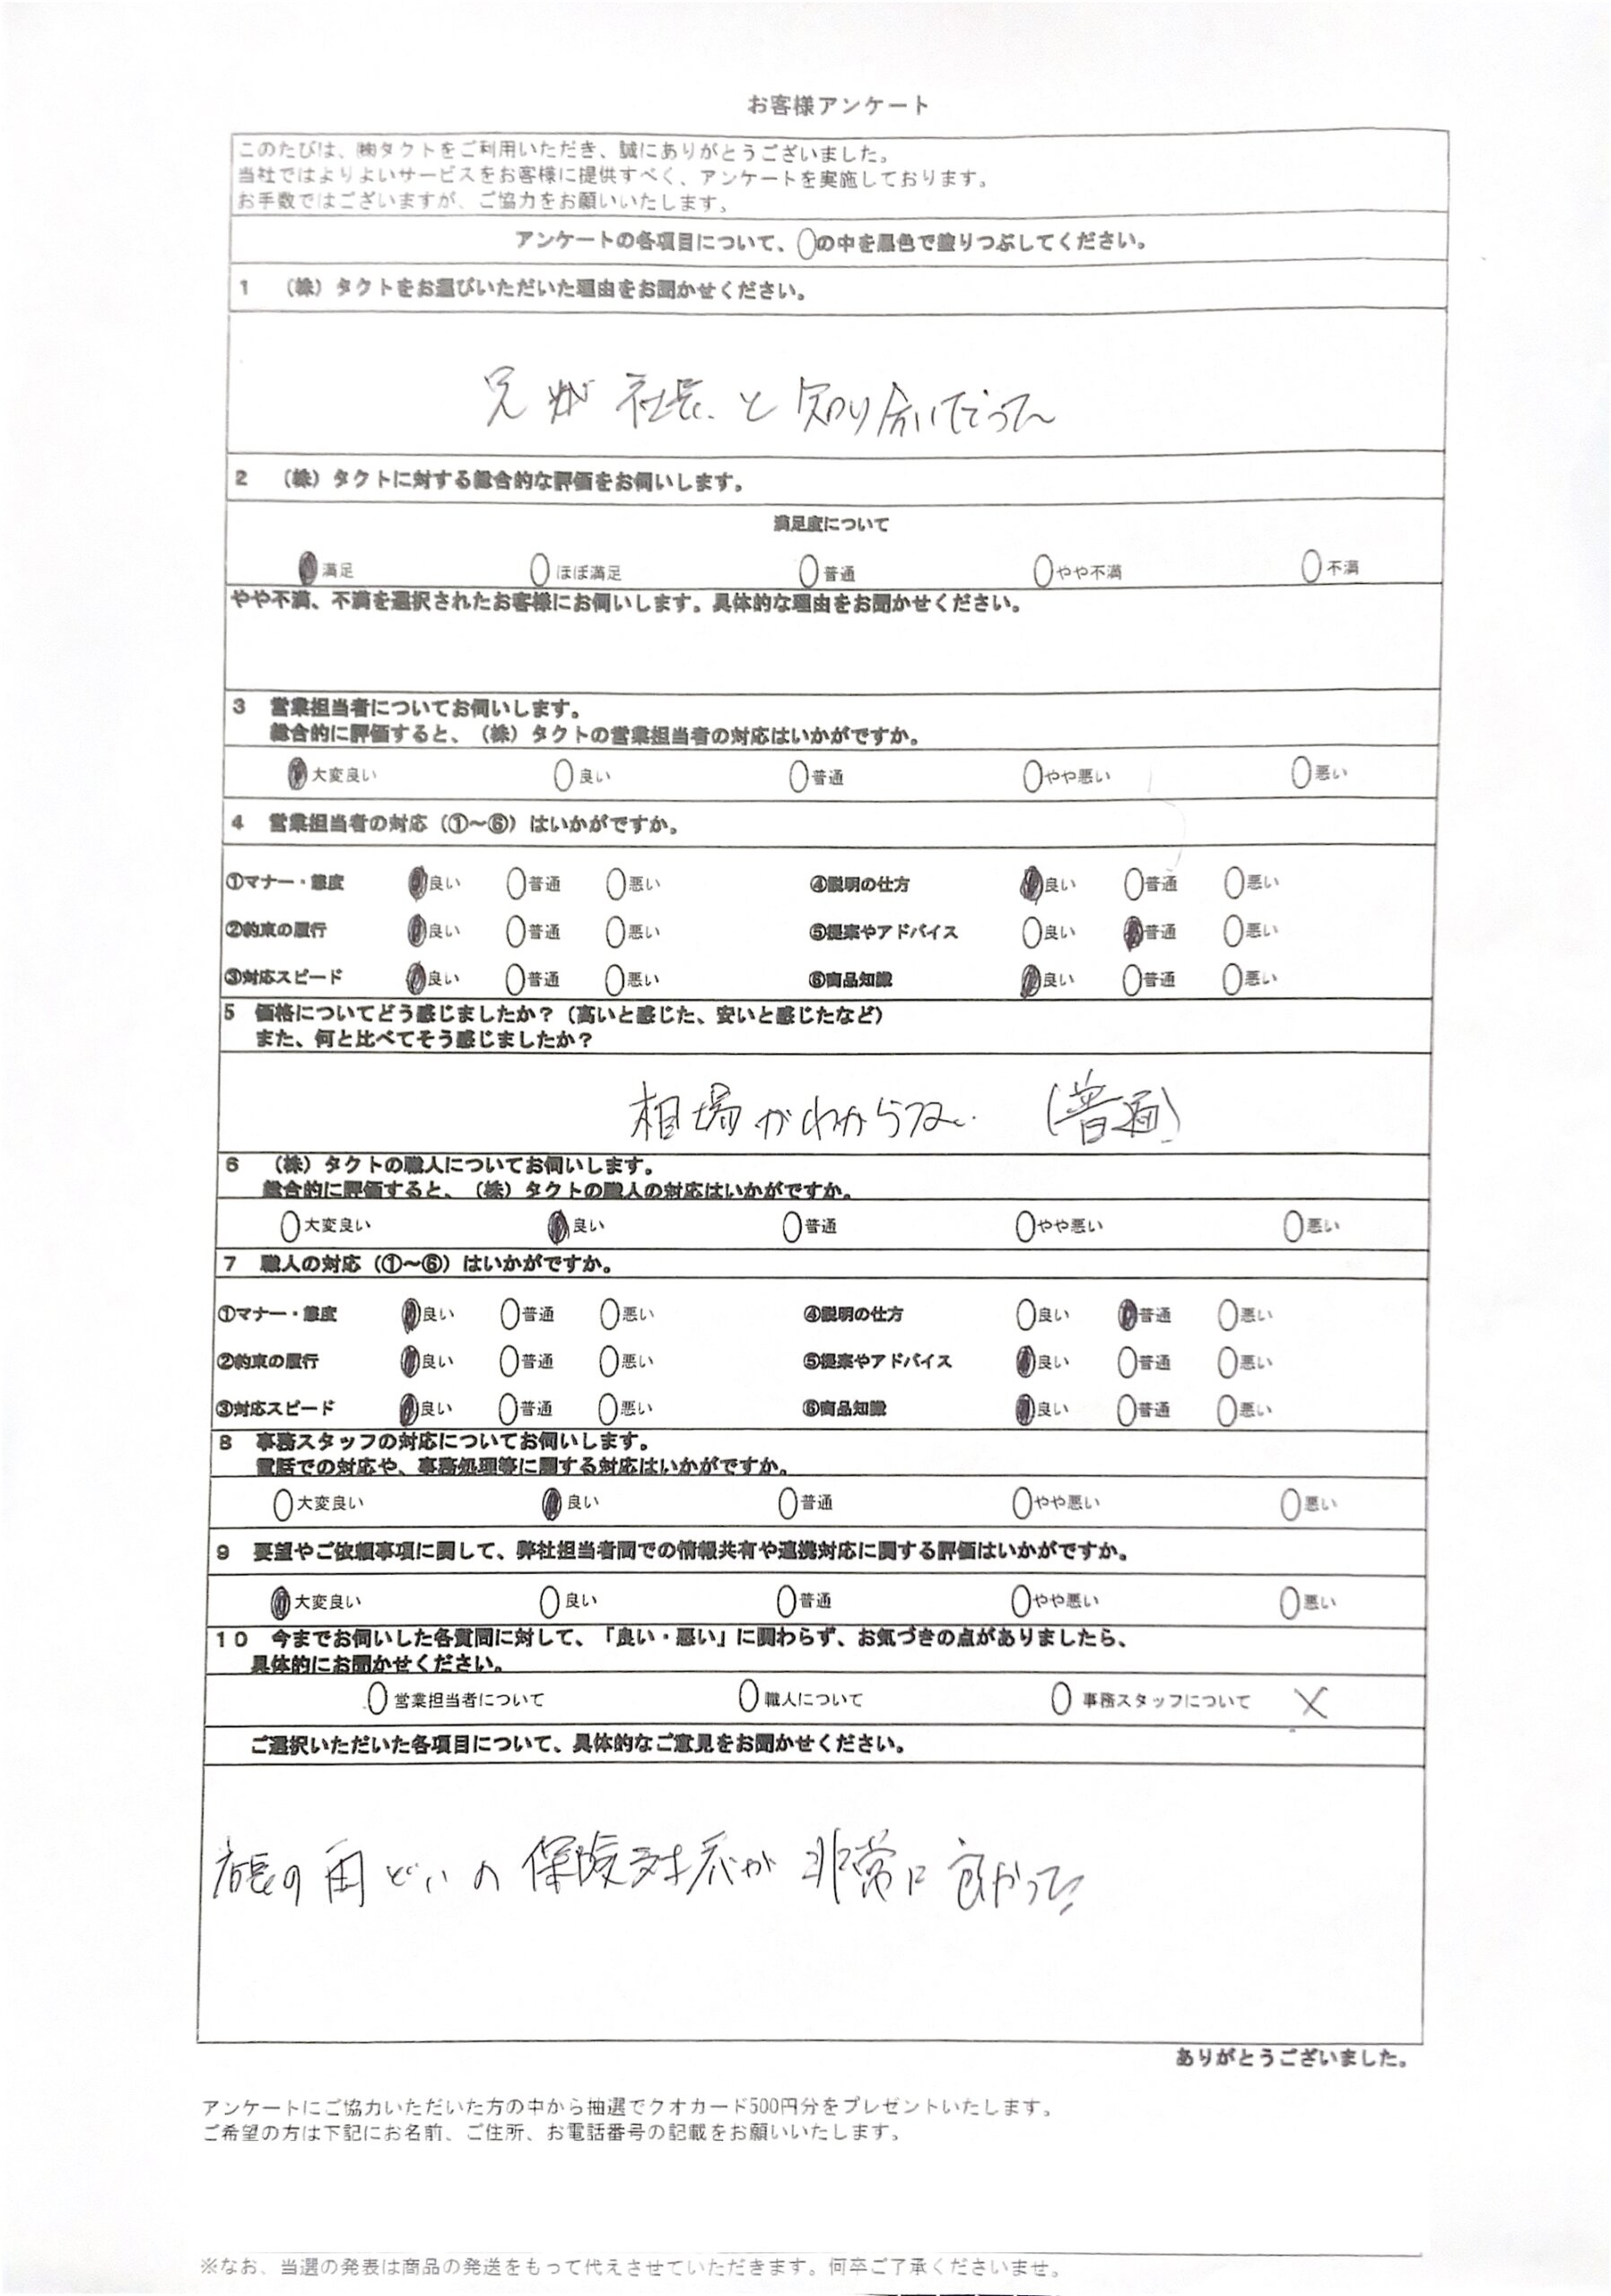 お客様アンケート
このたびは、㈱タクトをご利用いただき、誠にありがとうございました。
当社ではよりよいサービスをお客様に提供すべく、アンケートを実施しております。
お手数ではございますが、ご協力をお願いいたします。
アンケートの各項目について、○の中を黒色で塗りつぶしてください。
1 （株）タクトをお選びいただいた理由をお聞かせください。
兄が社長と知り合いだった
2 （株）タクトに対する総合的な評価をお伺いします。
満足度について
満足 ○ほぼ満足 ○普通 ○やや不満 ○不満
やや不満、不満を選択されたお客様にお伺いします。具体的な理由をお聞かせください。
3 営業担当者についてお伺いします。
総合的に評価すると、（株）タクトの営業担当者の対応はいかがですか。
大変良い ○良い ○普通 ○やや悪い ○悪い
4 営業担当者の対応（①～⑥）はいかがですか。
①マナー・態度 良い ○普通 ○悪い ④説明の仕方 良い ○普通 ○悪い
②約束の履行 良い ○普通 ○悪い ⑤提案やアドバイス ○良い 普通 ○悪い
③対応スピード 良い ○普通 ○悪い ⑥商品知識 良い ○普通 ○悪い
5 価格についてどう感じましたか？（高いと感じた、安いと感じたなど）
また、何と比べてそう感じましたか？
相場がわからない （普通）
6 （株）タクトの職人についてお伺いします。
総合的に評価すると、（株）タクトの職人の対応はいかがですか。
○大変良い 良い ○普通 ○やや悪い ○悪い
7 職人の対応（①～⑥）はいかがですか。
①マナー・態度 良い ○普通 ○悪い ④説明の仕方 ○良い 普通 ○悪い
②約束の履行 良い ○普通 ○悪い ⑤提案やアドバイス 良い ○普通 ○悪い
③対応スピード 良い ○普通 ○悪い ⑥商品知識 良い ○普通 ○悪い
8 事務スタッフの対応についてお伺いします。
電話での対応や、事務処理等に関する対応はいかがですか。
○大変良い 良い ○普通 ○やや悪い ○悪い
9 要望やご依頼事項に関して、弊社担当者間での情報共有や連携対応に関する評価はいかがですか。
大変良い ○良い ○普通 ○やや悪い ○悪い
10 今までお伺いした各質問に対して、「良い・悪い」に関わらず、お気づきの点がありましたら、
具体的にお聞かせください。
○営業担当者について ○職人について ○事務スタッフについて ×
ご選択いただいた各項目について、具体的なご意見をお聞かせください。
の保険対応が非常に良かった
ありがとうございました。
アンケートにご協力いただいた方の中から抽選でクオカード500円分をプレゼントいたします。
ご希望の方は下記にお名前、ご住所、お電話番号の記載をお願いいたします。
※なお、当選の発表は商品の発送をもって代えさせていただきます。何卒ご了承くださいませ。